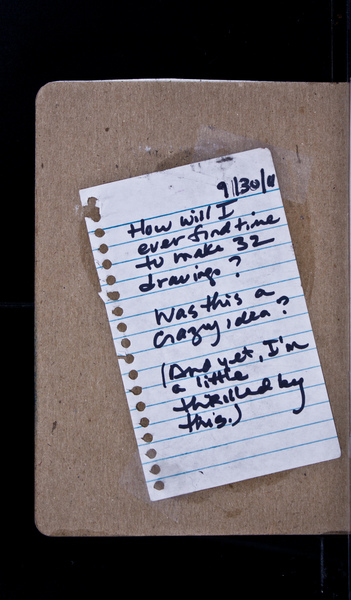 9/30/11
How will I
ever find time
to make 32
drawings?
Was this a
crazy idea?
(And yet, I'm
a little
thrilled by
this.)